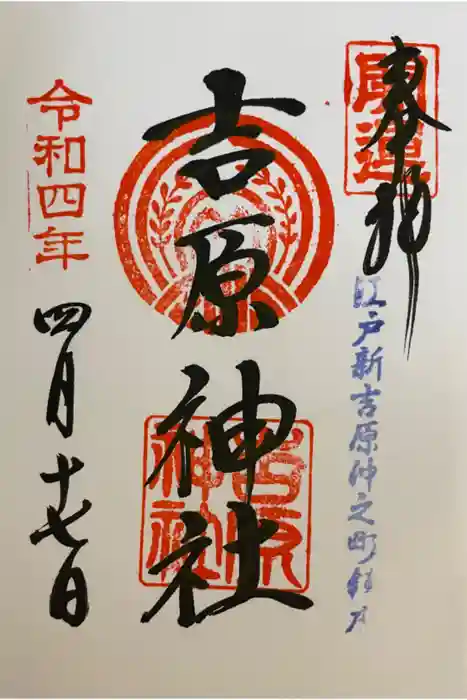 奉拝
開運
江戸新吉原仲之町鎮守
吉原神社
吉原神社
令和四年
四月十七日